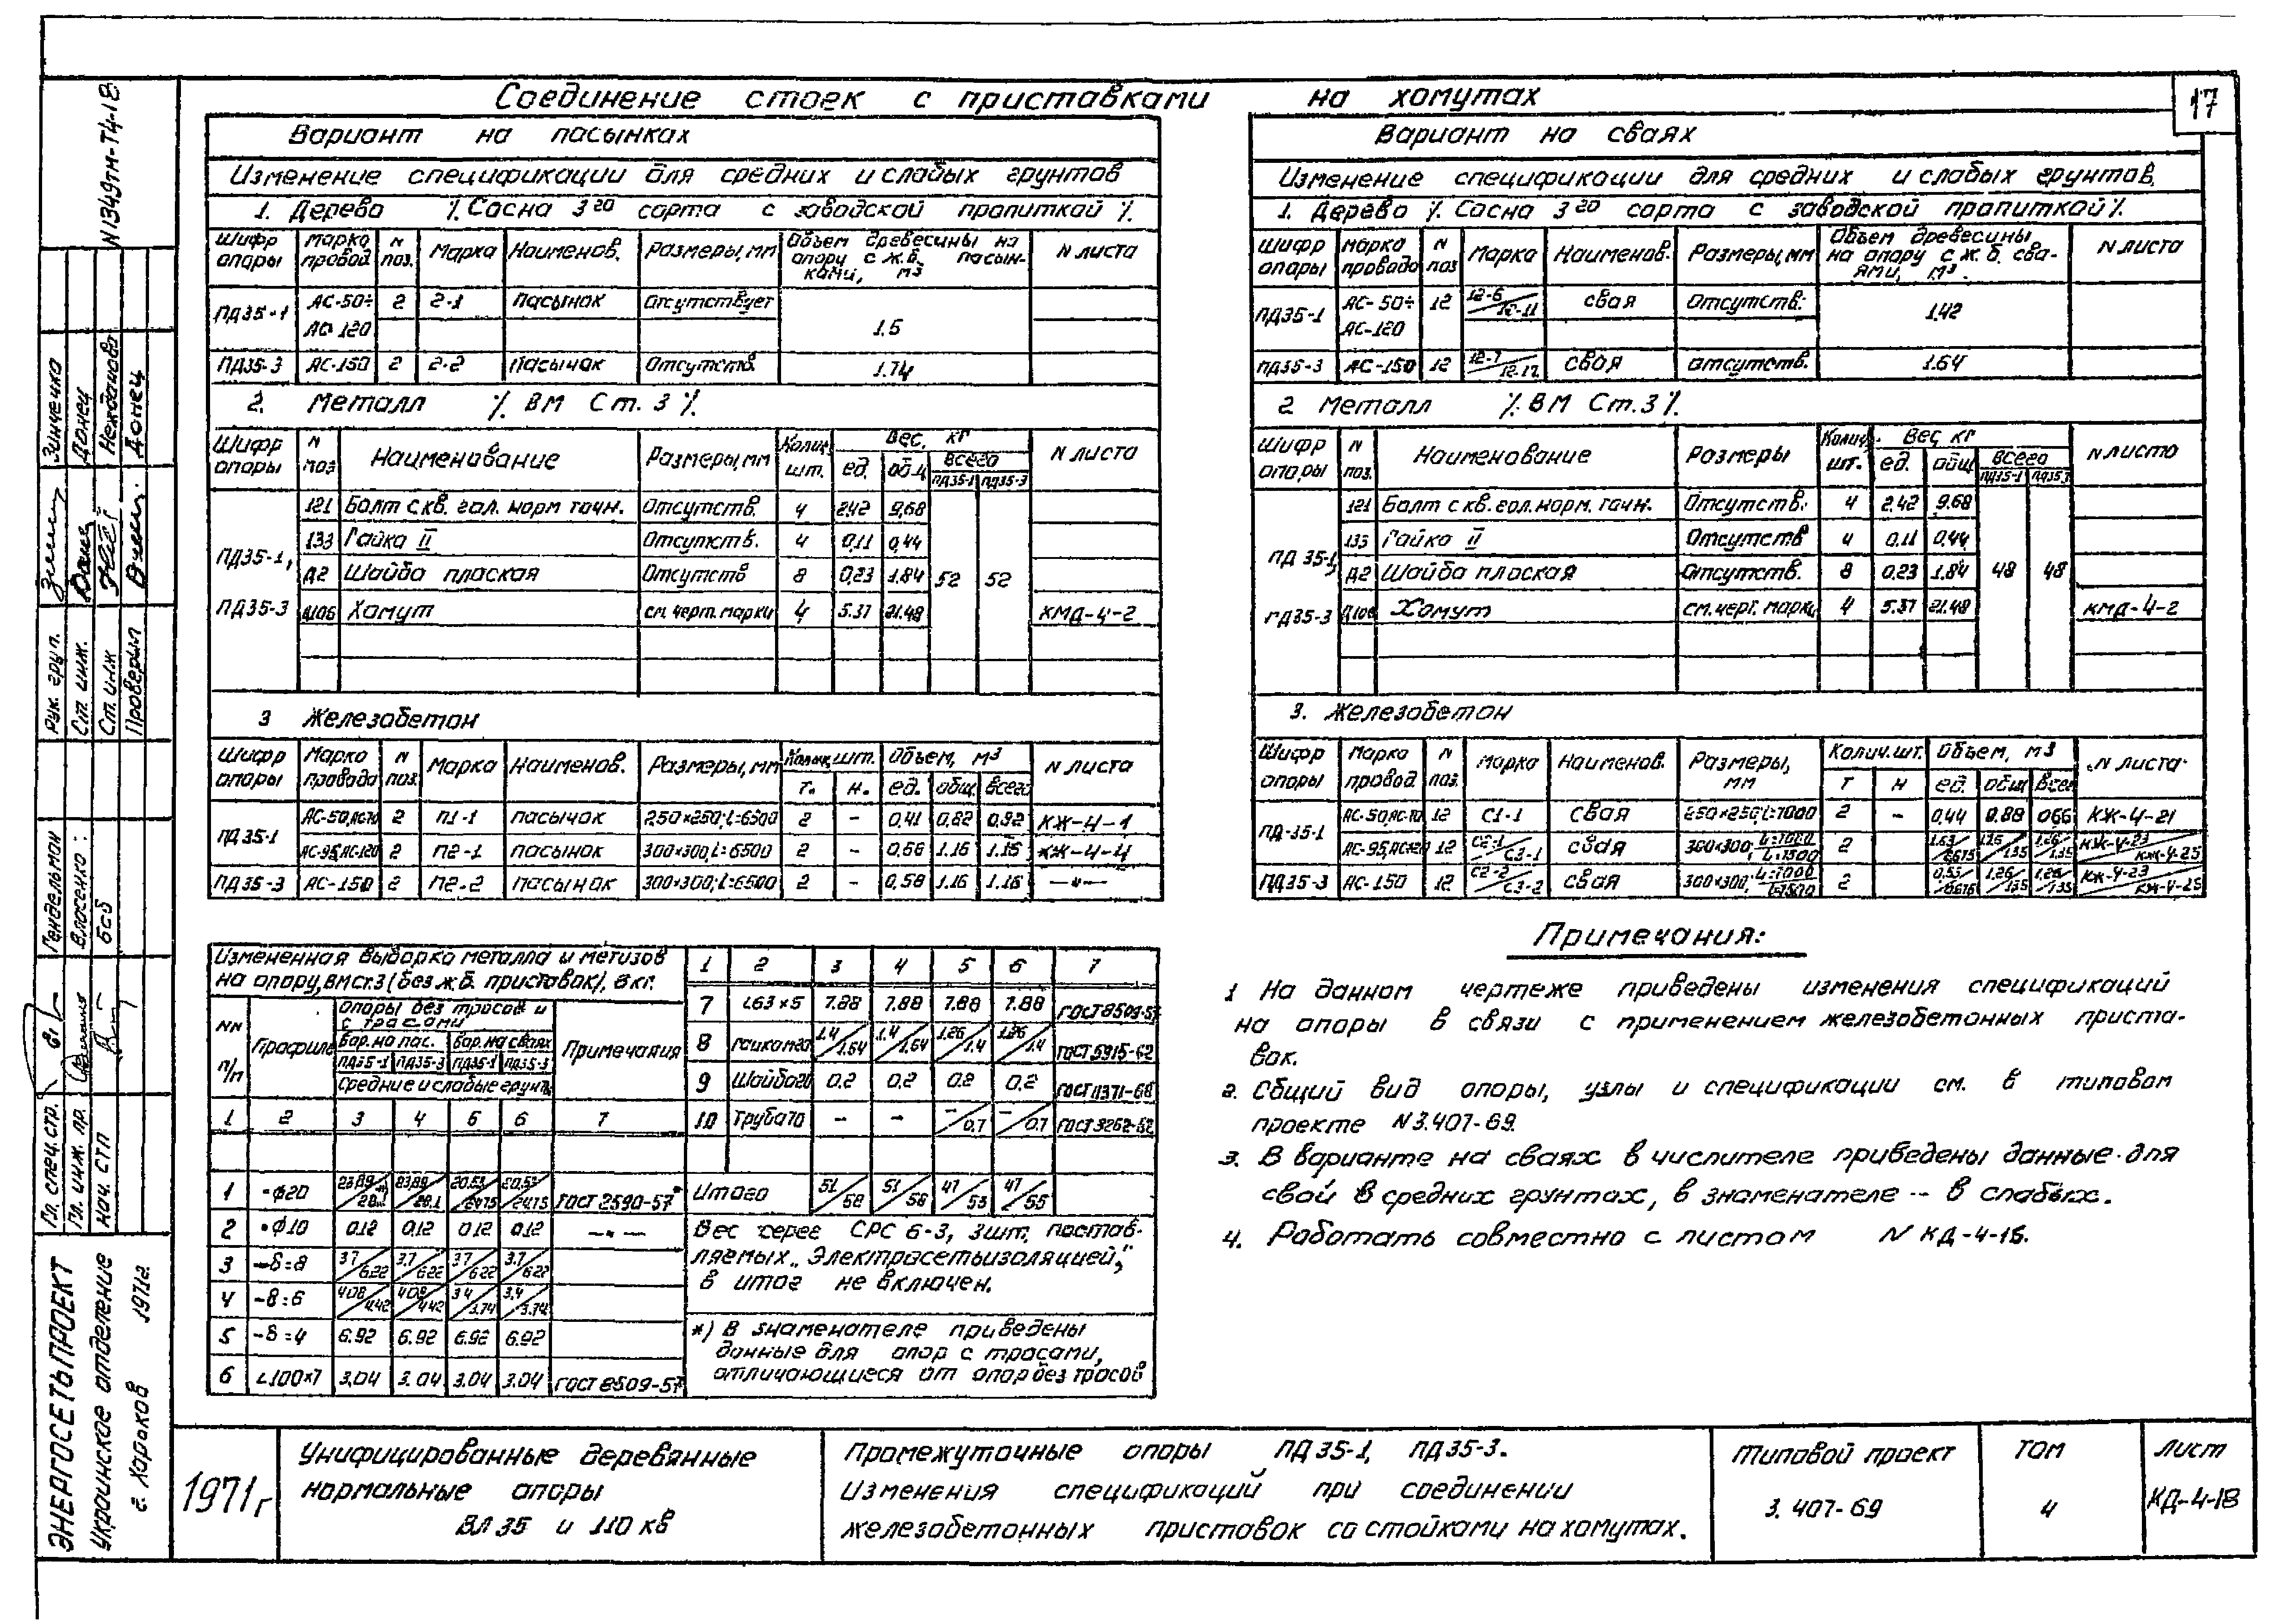 17
Соединение стоек с приставками на хомутах
Вариант на пасынках
Изменение спецификации для средних и слабых грунтов
1. Дерево /. Сосна 3го сорта с заводской пропиткой /.
Шифр опоры Марка провод. N поз. Марка Наименов. Размеры, мм Объем древесины на опору с ж.б. пасынками, м3 N листа
ПД35-1 АС-50÷ АС-120 2 2-1 Пасынок Отсутствует 1.5
ПД35-3 АС-150 2 2-2 Пасынок Отсутств. 1.74
2. Металл /. ВМ Ст. 3 /.
Шифр опоры N поз Наименование Размеры, мм Колич. шт. Вес, кг ед. общ всего ПД35-1 ПД35-3 N листа
ПД35-1, ПД35-3
121 Болт с кв. гол. норм точн. Отсутств. 4 2.42 9.68
133 Гайка II Отсутств. 4 0,11 0,44
Д2 Шайба плоская Отсутств 8 0,23 1.84 52 52
Хомут см. черт. марки 4 5.37 21.48 КМД-4-2
3 Железобетон
Шифр опоры Марка провода N поз. Марка Наименов. Размеры, мм Колич. шт. т. н. Объем, м3 ед. общ. всего N листа
ПД35-1 АС-50, АС-70 2 П1-1 пасынок 250×250; L=6500 2 - 0,41 0,82 КЖ-4-1
АС-95, АС-120 2 П2-1 пасынок 300×300; L=6500 2 - 1.16 КЖ-4-4
ПД35-3 АС-150 2 П2-2 пасынок 300×300; L=6500 2 - 0,58 1.16 1.16 —"—
Вариант на сваях
Изменение спецификации для средних и слабых грунтов.
1. Дерево /. Сосна 3го сорта с заводской пропиткой /.
Шифр опоры Марка провода N поз Марка Наименов. Размеры, мм Объем древесины на опору с ж.б. сваями, м3. N листа
ПД35-1 АС-50÷ АС-120 12 12-11 свая Отсутств. 1.42
ПД35-3 АС-150 12 свая отсутств. 1.64
2 Металл /. ВМ Ст. 3 /.
Шифр опоры N поз. Наименование Размеры Колич. шт. Вес кг ед. общ всего ПД35-1 ПД35-3 N листа
ПД35-1, ПД35-3
121 Болт с кв. гол. норм. точн. Отсутств. 4 2.42 9.68
Гайка II Отсутств 4 0.11 0.44
Д2 Шайба плоская Отсутств. 8 0.23 1.84 48 48
Хомут см. черт. марки 4 5.37 21.48 КМД-4-2
3. Железобетон
Шифр опоры Марка провод. N поз. Марка Наименов. Размеры, мм Колич. шт. т н Объем, м3 ед. общ всего N листа
ПД-35-1 АС-50, АС-70 12 С1-1 свая 250×250, L=7000 2 - 0,44 0.88 КЖ-4-21
АС-95, АС-120 12 С2-1/С3-1 свая 300×300, L=7000/L=7500 2 КЖ-4-23/КЖ-4-25
ПД35-3 АС-150 12 С2-2/С3-2 свая 300×300, L=7000/L=7500 2 1.26/1.35 1.26/1.35 КЖ-4-23/КЖ-4-25
Измененная выборка металла и метизов
на опору, вмст.3 (без ж.б. приставок), в кг.
NN п/п Профиле Опоры без тросов и с тросами Вар. на пас. Вар. на сваях ПД35-1 ПД35-3 ПД35-1 ПД35-3 Средние и слабые грунты Примечания
1 2 3 4 5 6 7
1 •ф20 ГОСТ 2590-57
2 •ф10 0.12 0.12 0.12 0.12 —"—
3 -δ=8 3.7/6.22 3.7/6.22 3.7/6.22 3.7/6.22
4 -δ=6 4.08/4.42 4.08/4.42 3.4/3.74 3.4/3.74
5 -δ=4 6.92 6.92 6.92 6.92
6 ∟100×7 3.04 3.04 3.04 3.04 ГОСТ 8509-57
1 2 3 4 5 6 7
7 ∟63×5 7.88 7.88 7.88 7.88 ГОСТ 8509-57
8 1.4/1.64 1.4/1.64 1.26/1.4 1.26/1.4 ГОСТ 5915-62
9 0.2 0.2 0.2 0.2 ГОСТ 11371-68
10 - - -/0.7 -/0.7 ГОСТ 3262-62
Итого 51/58 51/58 47/55 47/55
Вес серег СРС 6-3, 3шт, постав-
ляемых „Электросетьизоляцией,"
в итог не включен.
*) В знаменателе приведены
данные для опор с тросами,
отличающиеся от опор без тросов
Примечания:
1 На данном чертеже приведены изменения спецификаций
на опоры в связи с применением железобетонных приста-
вок.
2. Общий вид опоры, узлы и спецификации см. в типовом
проекте N 3.407-69.
3. В варианте на сваях в числителе приведены данные для
свай в средних грунтах, в знаменателе -- в слабых.
4. Работать совместно с листом N КД-4-15.
1971г
Унифицированные деревянные
нормальные опоры
ВЛ 35 и 110 кв
Промежуточные опоры ПД35-1, ПД35-3.
Изменения спецификаций при соединении
железобетонных приставок со стойками на хомутах.
Типовой проект
3.407-69
Том
4
Лист
КД-4-18
N1349тм-Т4-18
Зинченко
Донец
Нежданова
Донец
Рук. груп.
Ст. инж.
Ст. инж
Проверил
Гендельман
Власенко
Гл. спец. стр.
Гл. инж. пр.
Нач. СТП
ЭНЕРГОСЕТЬПРОЕКТ
Украинское отделение
г. Харьков 1971г.